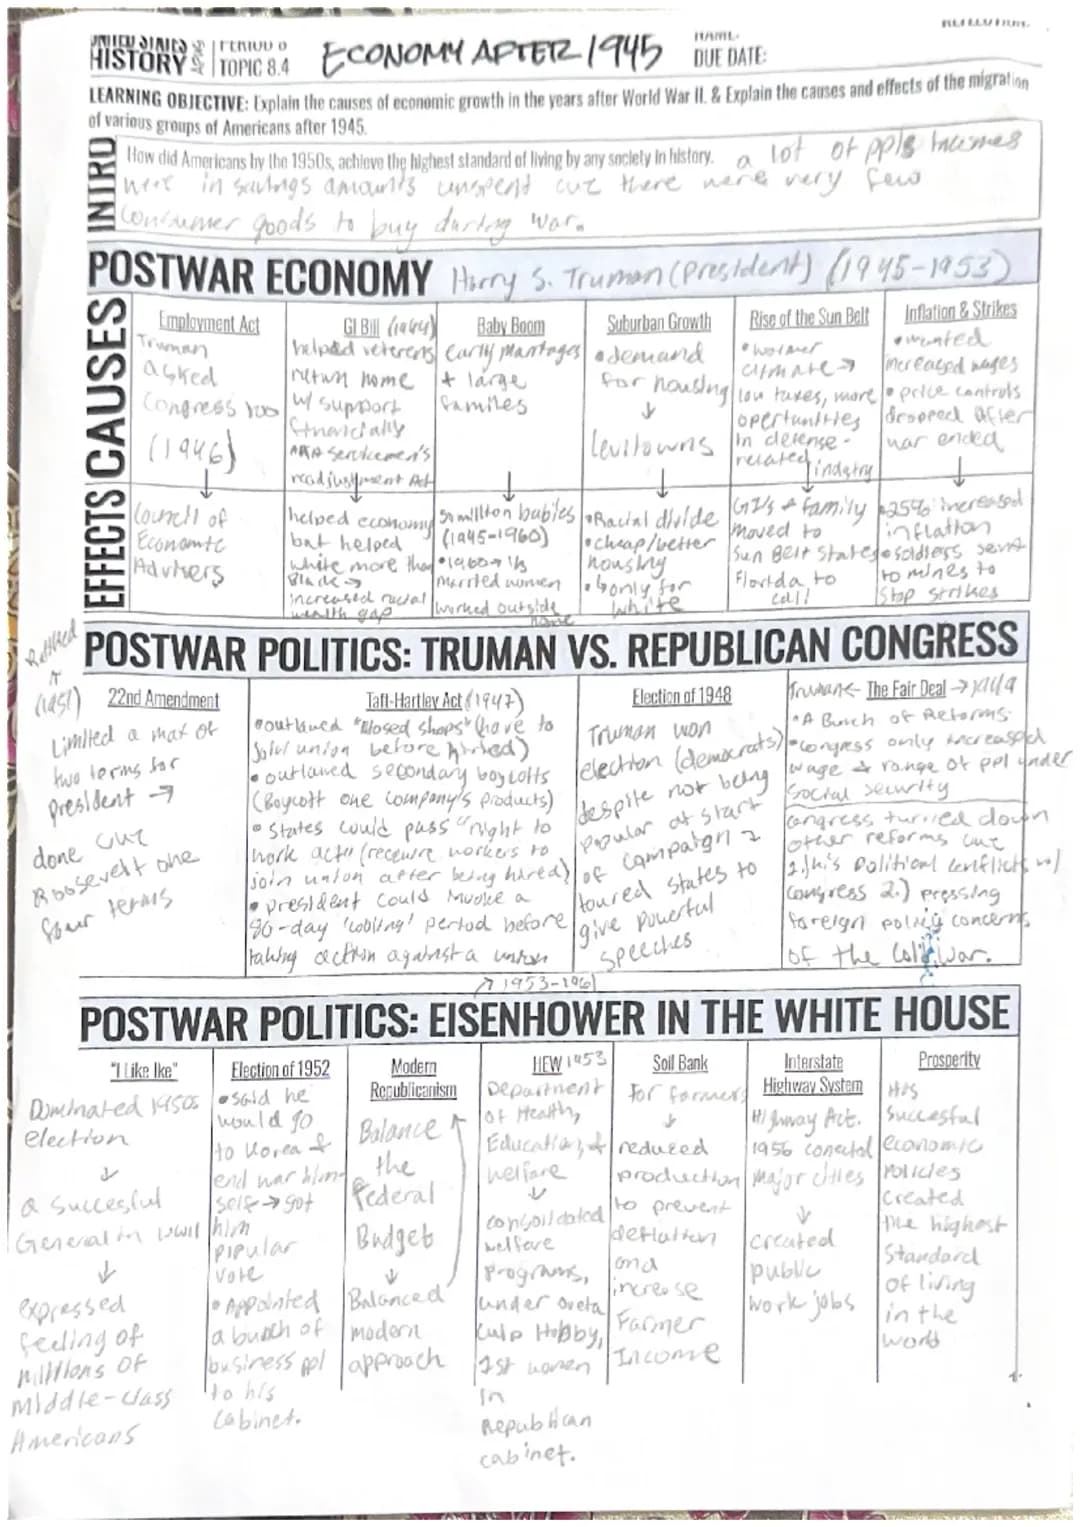 UNITED STATES HISTORY
PERIOD 8
TOPIC 8.4
ECONOMY AFTER 1945
NAME:
DUE DATE:
LEARNING OBJECTIVE: Explain the causes of economic growth in the years after World War II. & Explain the causes and effects of the migration
of various groups of Americans after 1945.
INTRO
How did Americans by the 1950s, achieve the highest standard of living by any society in history. a lot of ppls incomes
were in savings amounts unspent cuz there were very few
consumer goods to buy during war.
POSTWAR ECONOMY Harry S. Truman (President) (1945-1953)
CAUSES
Employment Act
Truman
asked
Congress too
(1946)
GI Bill (1944)
helped veterens
return home
w/ support
financially
AKA servicemen's
readjustment Act
Baby Boom
Early marriages
+ large
families
Suburban Growth
• demand
for housing
↓
Levittowns
Rise of the Sun Belt
• warmer
climate →
low taxes, more
opertunities
in defense-
related indstry
Inflation & Strikes
• wanted
increased wages
• price controls
dropped after
war ended
EFFECTS
Council of
Economic
Advisers
helped economy
but helped
white more than
Black →
increased racial
wealth gap
50 million babies
(1945-1960)
• 1960 → 1/3
married women
worked outside
home
• Racial divide
• cheap/better
housing
• only for
white
GI's & family
moved to
Sun Belt states
Florida to
cali
• 25% increased
inflation
• soldiers sent
to mines to
stop strikes
POSTWAR POLITICS: TRUMAN VS. REPUBLICAN CONGRESS
(1951)
22nd Amendment
Limited a max of
two terms for
president →
done cuz
Roosevelt one
four terms
Taft-Hartley Act (1947)
• outlawed "closed shops" (have to
join union before hired)
• outlawed secondary boycotts
(Boycott one company's products)
• States could pass "right to
work acts" (require workers to
join union after being hired)
• president could invoke a
80-day "cooling" period before
taking action against a union
Election of 1948
Truman won
election (democrats)
despite not being
popular at start
of campaign →
toured states to
give powerful
speeches
Truman ← The Fair Deal → 1949
• A Bunch of Reforms
• congress only increased
wage & range of ppl under
social security
congress turned down
other reforms cuz
1.) his political conflicts w/
congress 2.) pressing
foreign policy concerns
of the Cold War.
↗ 1953-1961
POSTWAR POLITICS: EISENHOWER IN THE WHITE HOUSE
"I Like Ike"
Dominated 1950s
election
↓
a succesful
General in WWII
↓
expressed
feeling of
millions of
Middle-class
Americans
Election of 1952
• said he
would go
to Korea &
end war him-
self → got
him
popular
vote
• Appointed
a bunch of
business ppl
to his
cabinet.
Modern
Republicanism
Balance
the
Federal
Budget
↓
Balanced
modern
approach
HEW 1953
Department
of Health,
Education, &
welfare
↓
consolidated
welfare
programs,
under Oveta
Culp Hobby,
1st women
in
Republican
cabinet.
Soil Bank
For farmers
↓
reduced
production
to prevent
deflation
and
increase
Farmer
Income
Interstate
Highway System
Highway Act.
1956 conected
major cities
↓
created
public
work jobs
Prosperity
His
succesful
economic
policies
created
the highest
standard
of living
in the
world